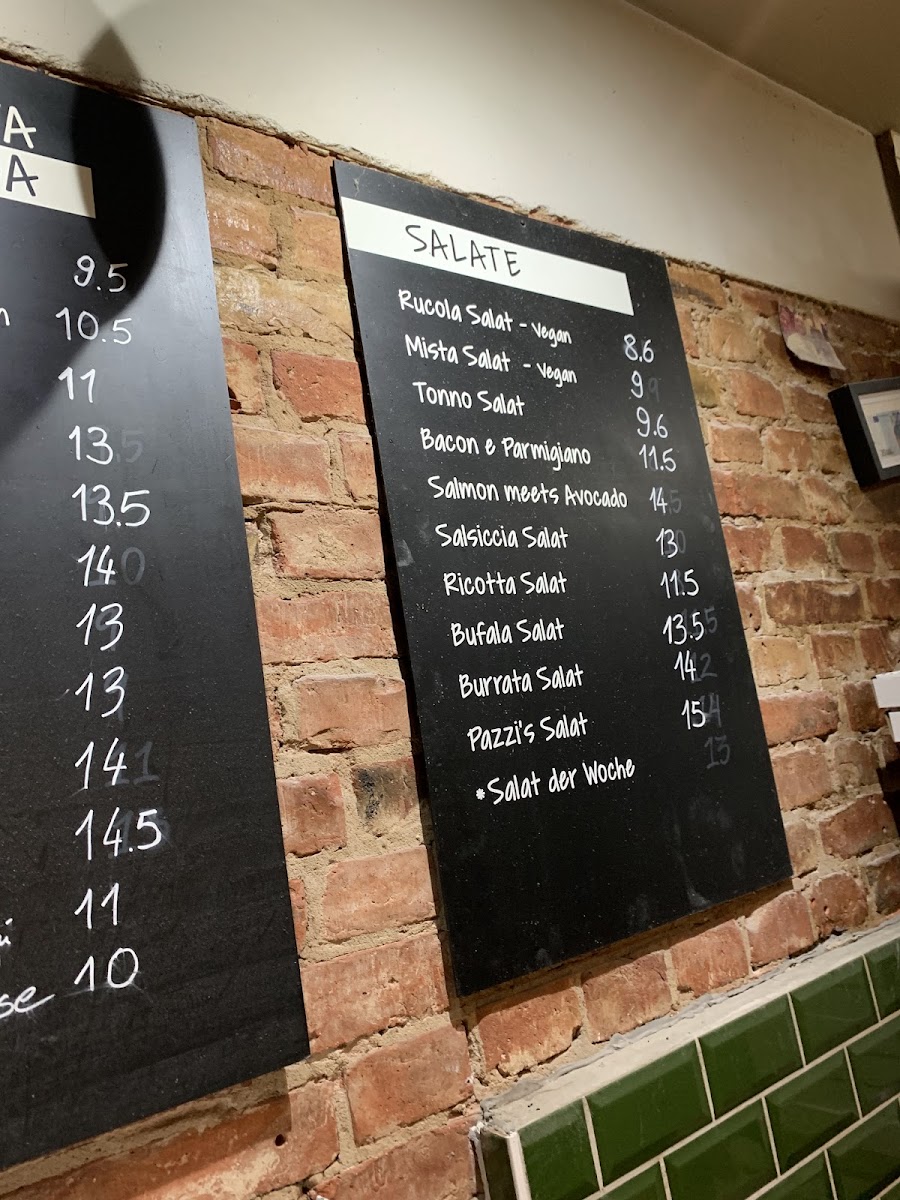 A
A
9.5
10.5
11
13
13.5
14
13
13
14
14.5
11
10
SALATE
Rucola Salat - Vegan 8.6
Mista Salat - Vegan 9
Tonno Salat 9.6
Bacon e Parmigiano 11.5
Salmon meets Avocado 14
Salsiccia Salat 13
Ricotta Salat 11.5
Bufala Salat 13.5
Burrata Salat 14
Pazzi's Salat 15
*Salat der Woche